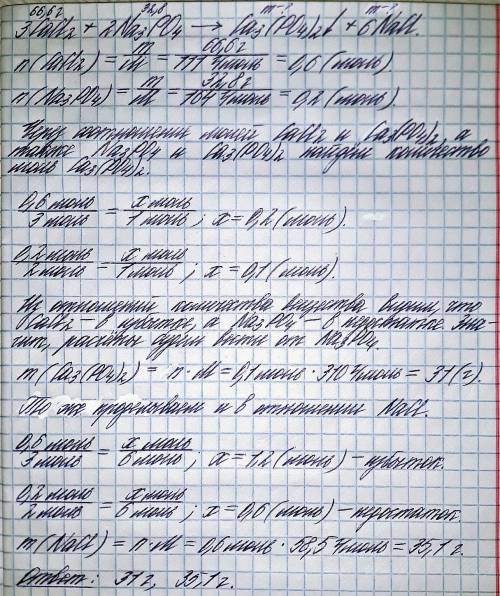 66,6г 32,8 m-? m-?
3CaCl₂ + 2Na₃PO₄ → Ca₃(PO₄)₂↓ + 6NaCl.
n(CaCl₂) = m/M = 66,6г/111 г/моль = 0,6 (моль).
n(Na₃PO₄) = m/M = 32,8г/164 г/моль = 0,2 (моль).
Через соотношения молей CaCl₂ и Ca₃(PO₄)₂, а
также Na₃PO₄ и Ca₃(PO₄)₂ найдём количество
моль Ca₃(PO₄)₂.
0,6 моль/3 моль = x моль/1 моль; x = 0,2 (моль).
0,2 моль/2 моль = x моль/1 моль; x = 0,1 (моль).
Из отношений количества вещества видим, что
CaCl₂ – в избытке, а Na₃PO₄ – в недостатке. Зна-
чит, расчёты будем вести от Na₃PO₄.
m(Ca₃(PO₄)₂) = n·M = 0,1 моль · 310 г/моль = 31 (г).
То же проделываем и в отношении NaCl.
0,6 моль/3 моль = x моль/6 моль; x = 1,2 (моль) – избыток.
0,2 моль/2 моль = x моль/6 моль; x = 0,6 (моль) – недостаток.
m(NaCl) = n·M = 0,6 моль · 58,5 г/моль = 35,1 г.
Ответ: 31 г, 35,1 г.